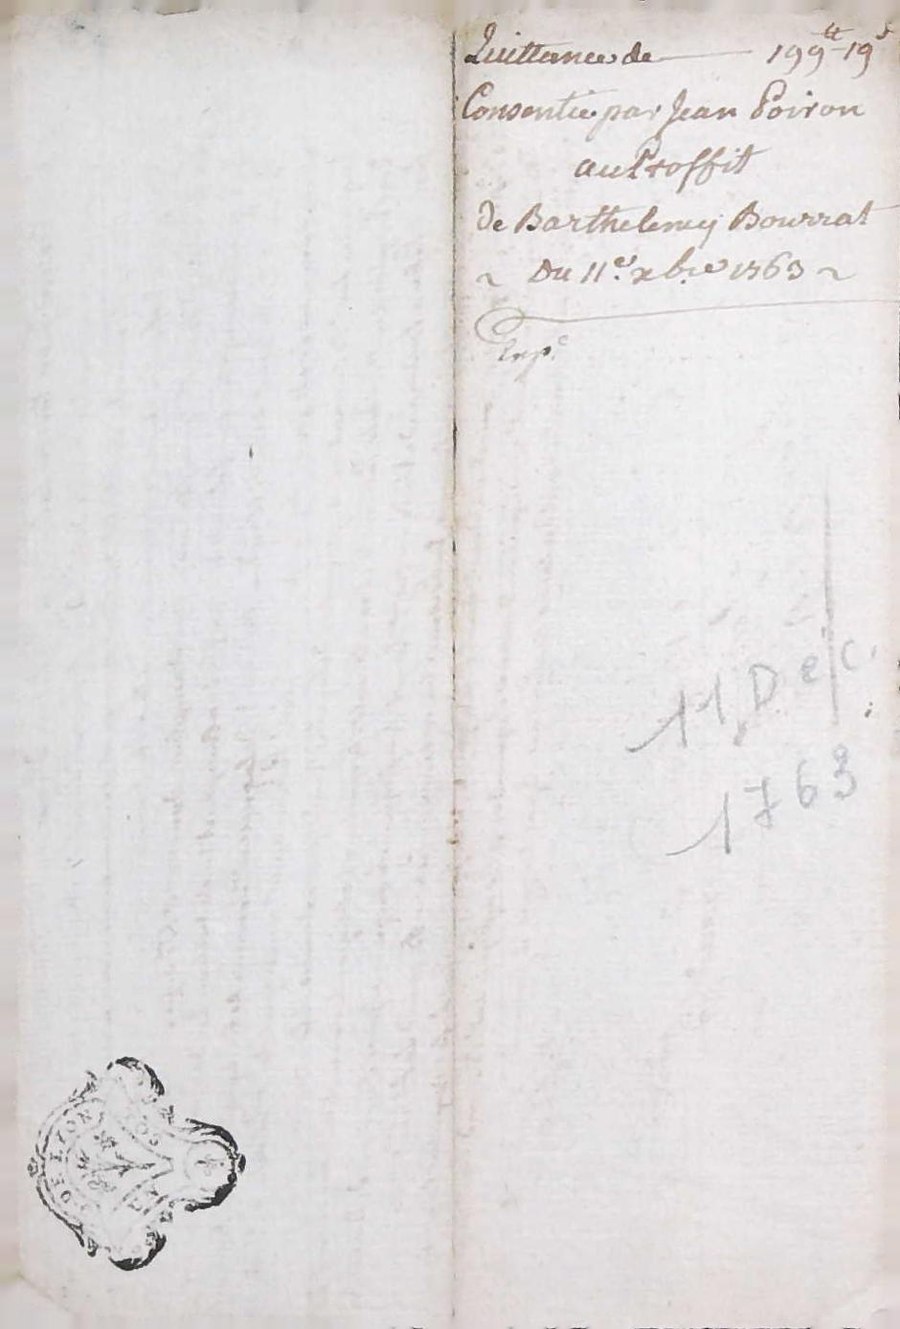 Quittance de 199ᵗᵗ 19ˢ
Consentie par Jean Poiron
au Proffit
de Barthelemy Bourrat
~ Du 11ᵉ. xbre 1763 ~
Exp.ᵉ
11 Déc.
1763
DE LYON